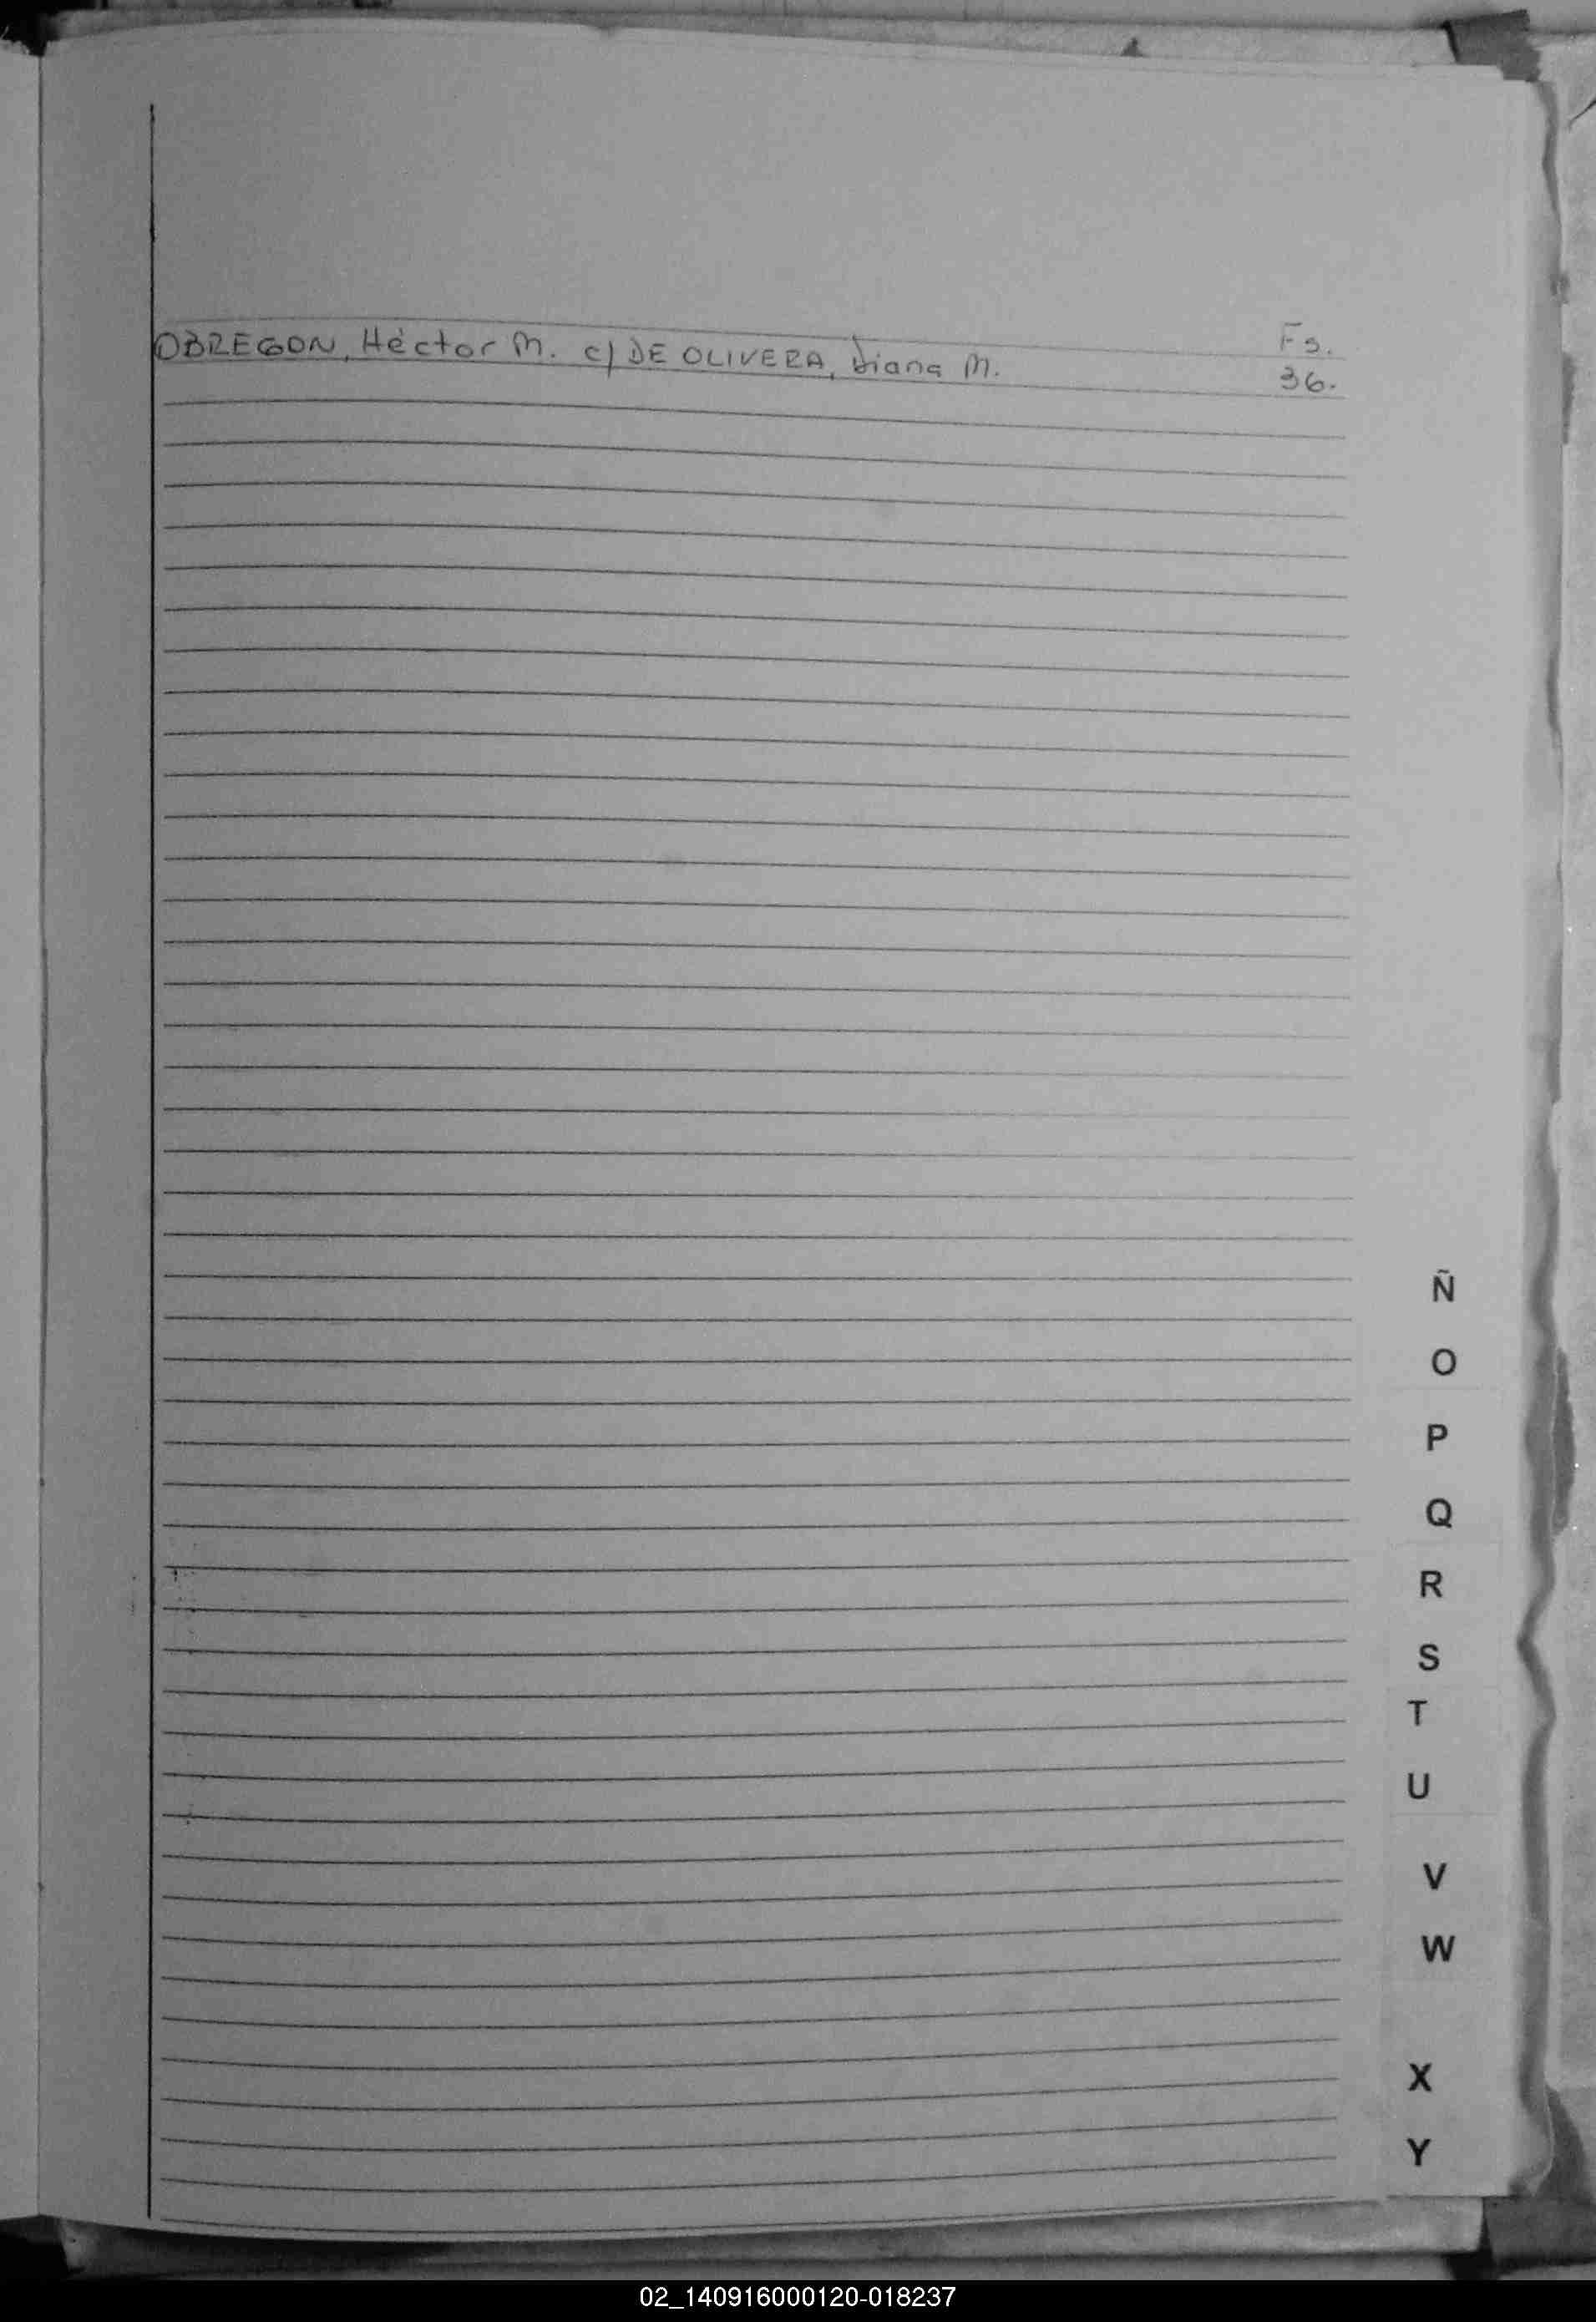 Fs.
OBREGON, Héctor M. c/ DE OLIVERA, Diana M. 36.
Ñ
O
P
Q
R
S
T
U
V
W
X
Y
02_140916000120-018237